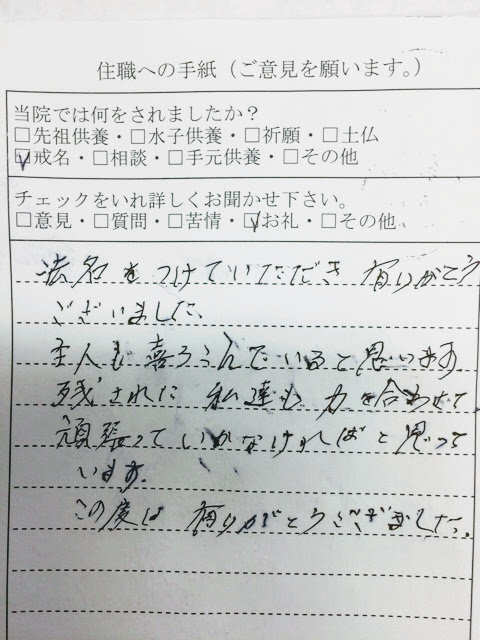 住職への手紙（ご意見を願います。）
当院では何をされましたか？
□先祖供養・□水子供養・□祈願・□土仏
☑戒名・□相談・□手元供養・□その他
チェックをいれ詳しくお聞かせ下さい。
□意見・□質問・□苦情・☑お礼・□その他
法名をつけていただき 有りがとう
ございました、
主人も喜ろこんでいると思います
残された 私達も 力を合わせて
頑張って いかなければと思って
います。
この度は 有りがとうございました。